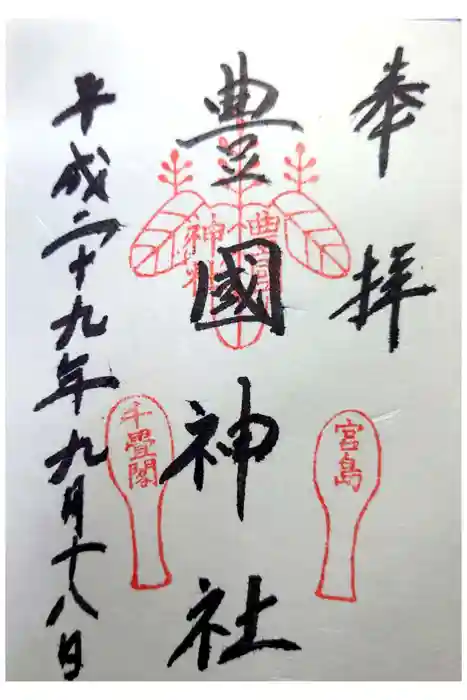 奉拝
豊國神社
豊國
神社
宮島
千畳閣
平成二十九年九月十八日